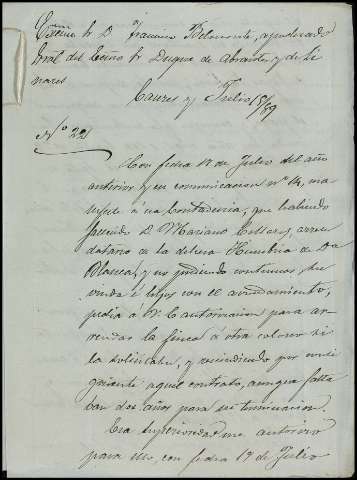 Excmo Sr D. Francisco Belmonte, apoderado
Gral del Excmo Sr Duque de Abrantes y de Li
nares
Caceres y Julio 15/89
Nº 221
Con fecha 12 de Julio del año
anterior y en comunicacion nº 14, ma
nifesté á esa Contaduria, que habiendo
fallecido D. Mariano, arren
datario de la dehesa Humbria de Dª
Blanca, y no pudiendo continuar su
viuda é hijos con el arrendamiento,
pedia á V.E. autorizacion para ar
rendar la finca á otro colono si
la solicitaba, y rescindiendo por consi
guiente aquel contrato, aunque falta
ban dos años para su terminacion.
Esa superioridad me autorizó
para ello, con fecha 19 de Julio